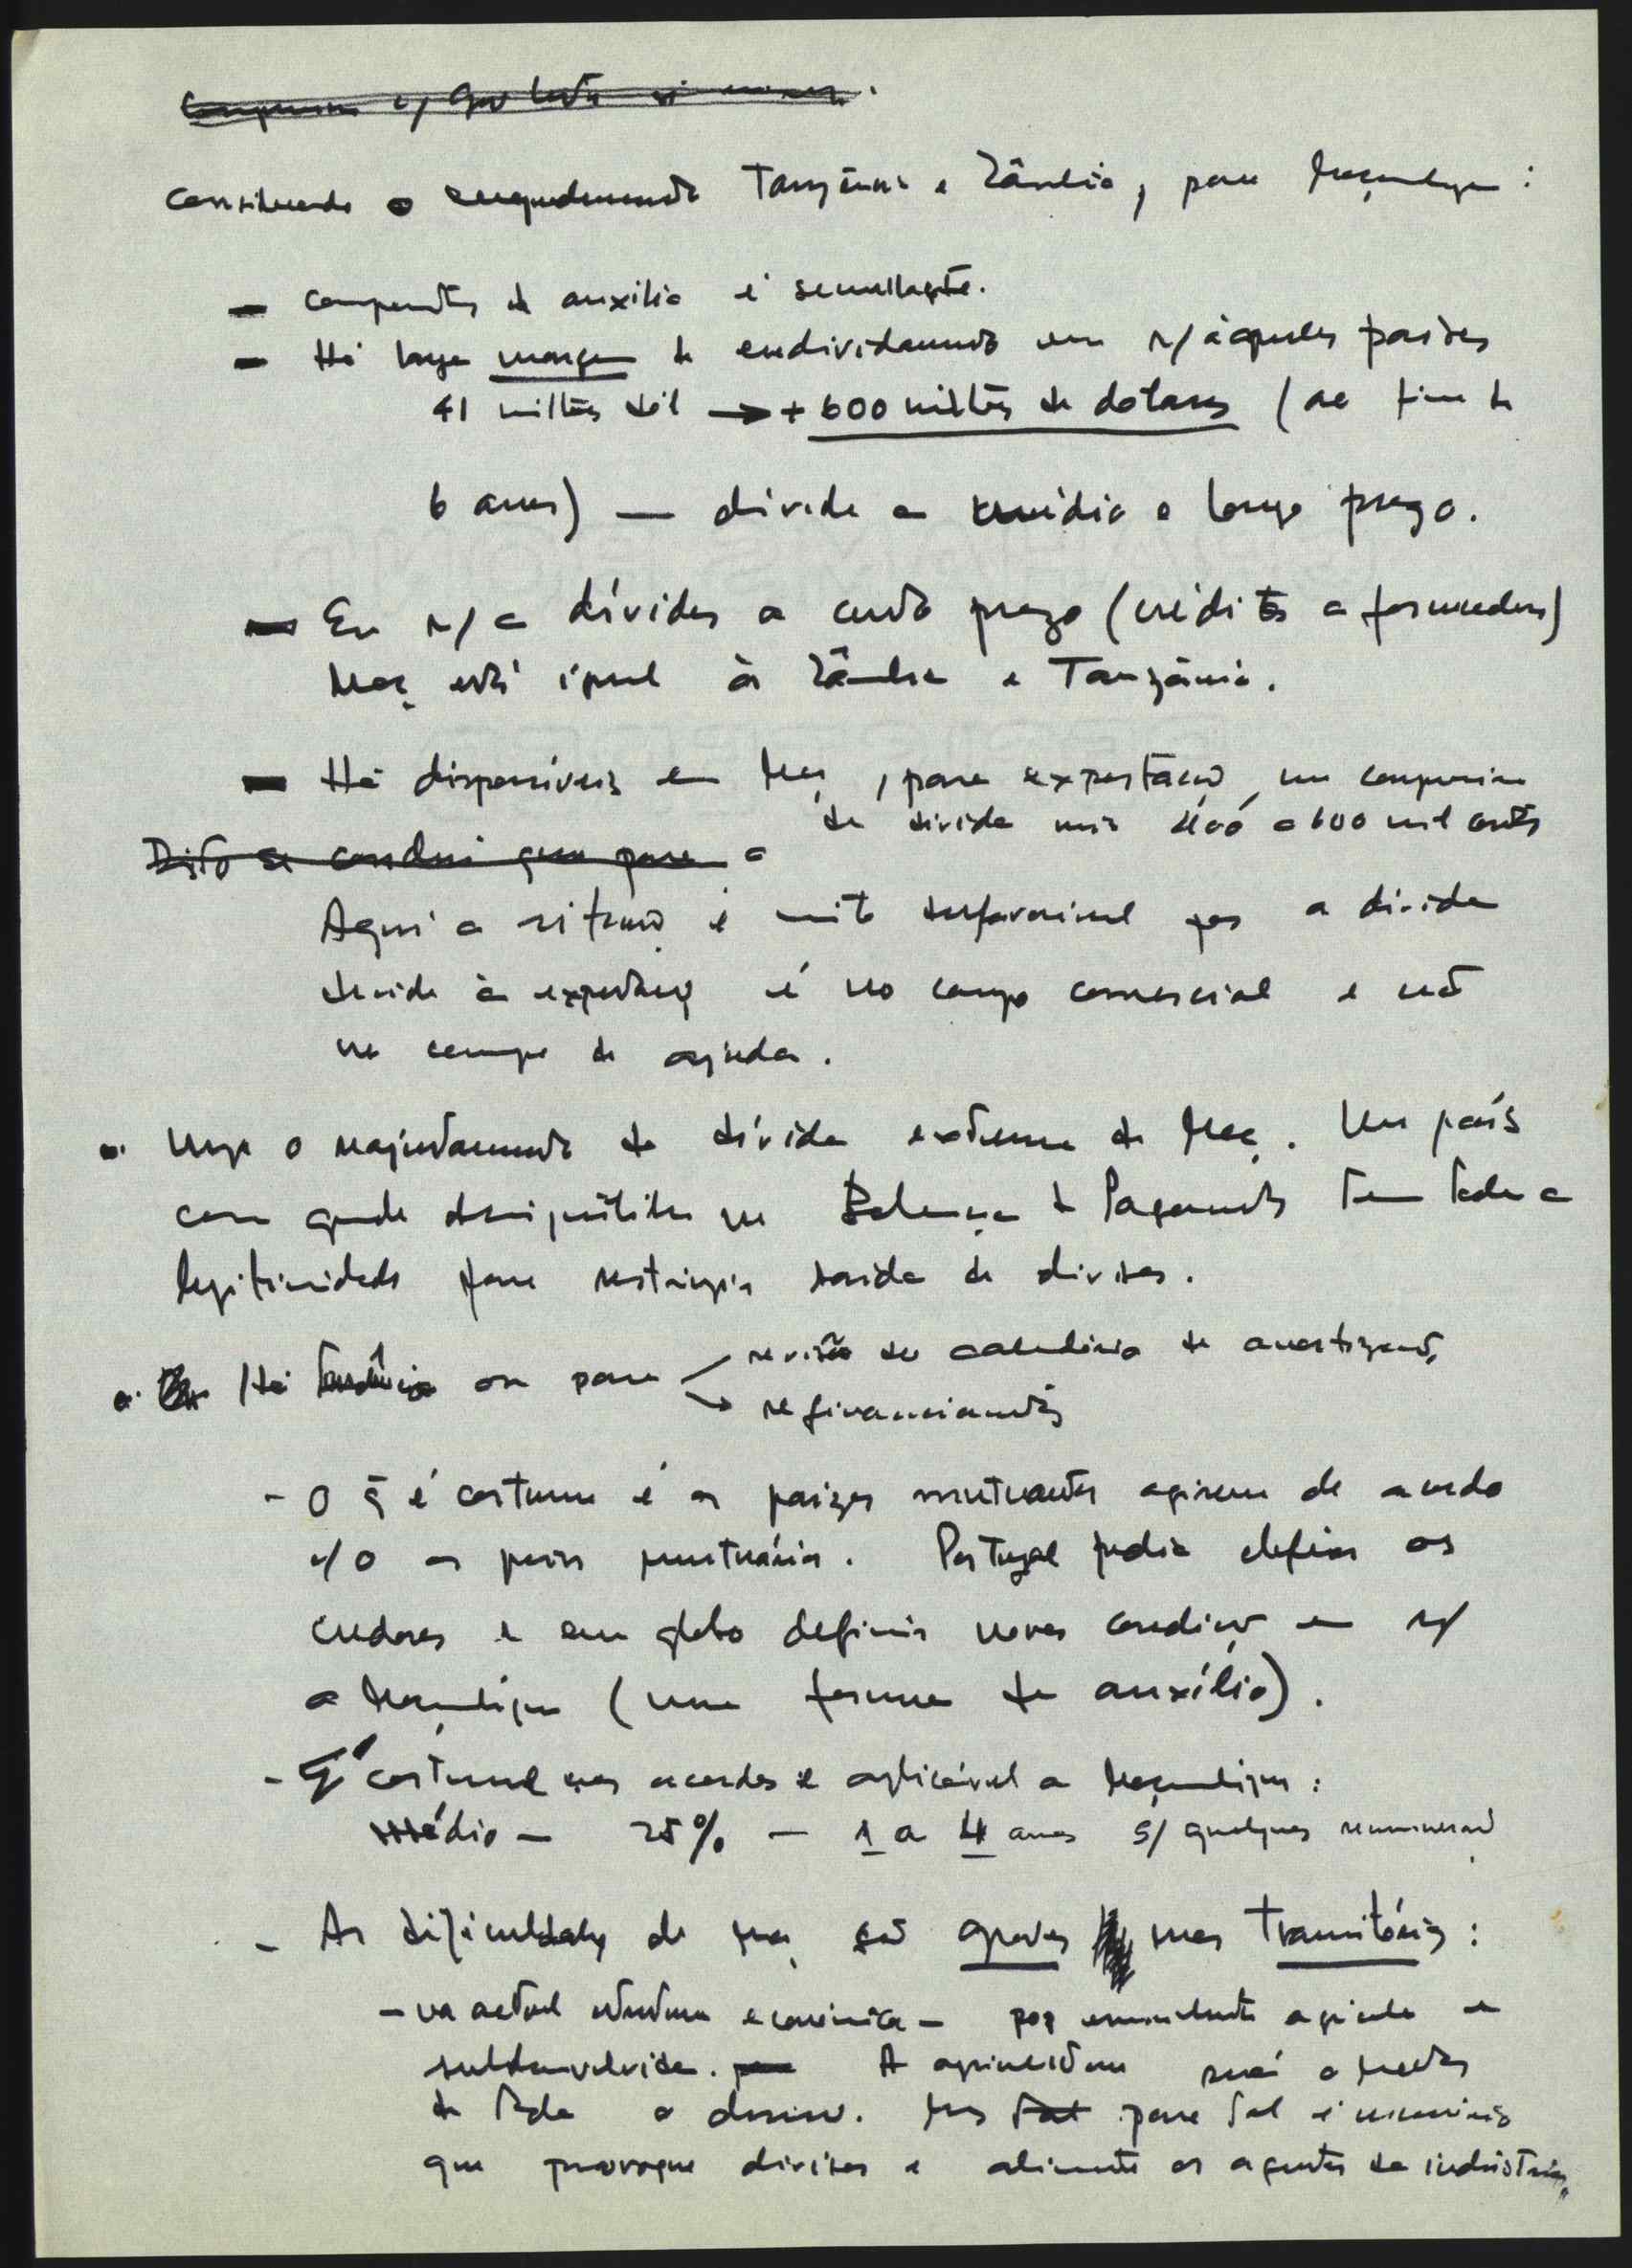 Considerando o enquadramento Tanzânia e Zâmbia, para Moçambique:
- componentes de auxílio é semelhante.
- Há larga margem de endividamento em r/ àqueles países
41 milhões dól → + 600 milhões de dólares (ao fim de
6 anos) — dívida a médio e longo prazo.
- Em r/ a dívidas a curto prazo (créditos a fornecedores)
Moç está igual à Zâmbia e Tanzânia.
- Há disponíveis em Moç, para exportação, um
de dívida 400 a 600 mil contos
Disto se conclui que para a
Aqui a situação é muito desfavorável pos a dívida
devida à exportação é no campo comercial e não
no campo da ajuda.
• Urge o reajustamento da dívida externa de Moç. Um país
com grande desequilíbrio na Balança de Pagamentos tem toda a
legitimidade para restringir saída de divisas.
• Há tendência ou para revisão do calendário de amortizações
→ refinanciamentos
- O q̃ é costume é os países mutuantes agirem de acordo
c/o os países mutuários. Portugal podia os
credores e em globo definir novas condições em r/
a Moçambique (uma forma de auxílio).
- É costume nos acordos e aplicável a Moçambique:
Médio - 25% - 1 a 4 anos s/ qualquer remuneração
- As dificuldades de Moç são graves mas transitórias:
- na actual estrutura económica - agrícola e
subdesenvolvida. A agricultura será o
de todo o desenv. Mas para tal é necessário
que provoque divisas e alimente os agentes da indústria,